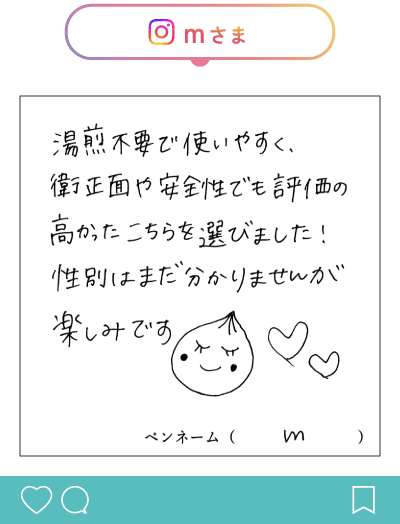 mさま
湯煎不要で使いやすく、
衛正面や安全性でも評価の
高かったこちらを選びました!
性別はまだ分かりませんが
楽しみです
ペンネーム( m )